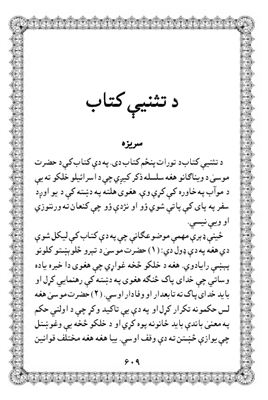 د تثنیې کتاب
سریزه
د تثنیې کتاب د تورات پنځم کتاب دی. په دې کتاب کې د حضرت
موسیٰ د ویناګانو هغه سلسله ذکر کیږي چې د اسرائیلو خلکو ته یې
د موآب په خاوره کې کړې وې. هغوی هلته په دښته کې د یو اوږد
سفر په پای کې پاتې شوي وو او نژدې وو چې کنعان ته ورننوزي
او ویې نیسي.
ځینې ډېرې مهمې موضوعګانې چې په دې کتاب کې لیکل شوې
دي هغه په دې ډول دي: (۱) حضرت موسیٰ د تېرو څلوېښتو کلونو
پېښې رایادوي. هغه د خلکو څخه غواړي چې هغوی دا خبره یاده
وساتي چې خدای پاک څنګه هغوی په دښته کې رهنمایي کړل او
باید خدای پاک ته تابعدار او وفادار اوسي. (۲) حضرت موسیٰ هغه
لس حکمونه تکرار کړل او په دې یې تاکید وکړ چې د اولني حکم
په معنیٰ باندې باید ځانونه پوه کړي او د خلکو څخه یې وغوښتل
چې یوازې څښتن ته دې وقف اوسي. بیا هغه هغه مختلف قوانین
٦٠٩